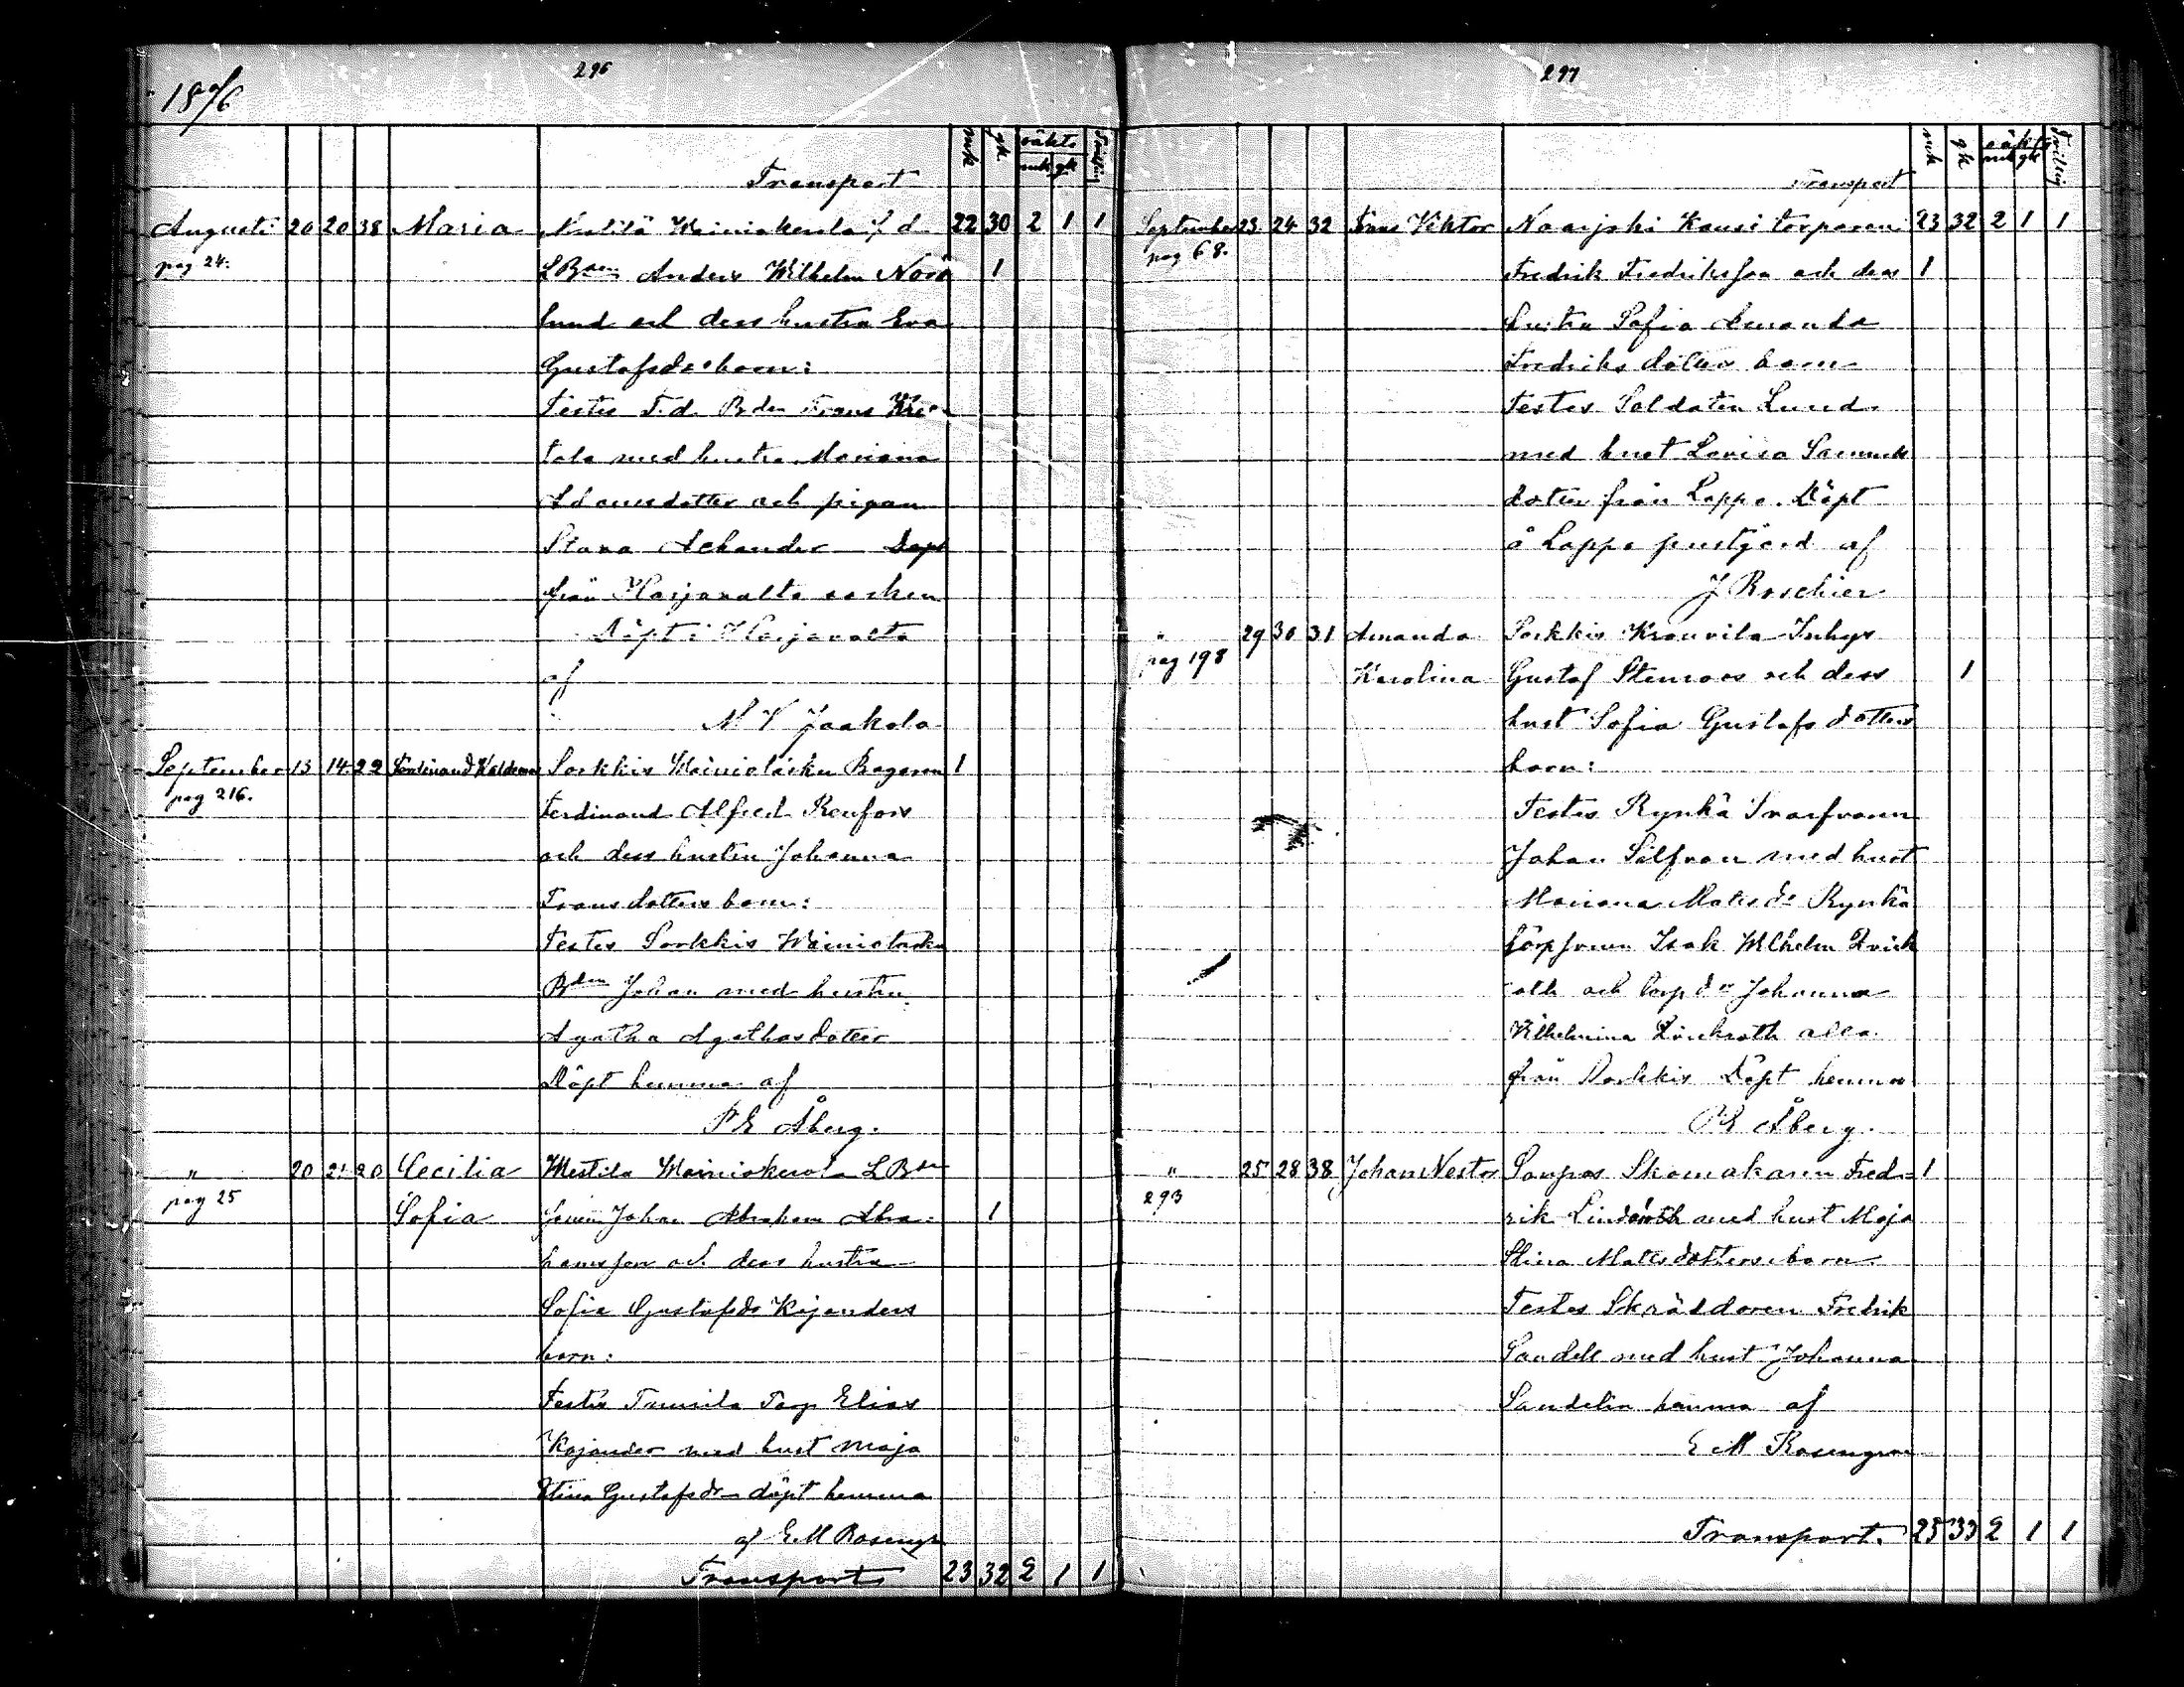 296
1876
mk gk oäkta mk gk Tvilling
Transport
Augusti 20 20 38 Maria Mainiokerola f d 22 30 2 1 1
pag 24. LBden Anders Wilhelm Nord 1
lund och dess hustru Eva
Gustafsdr barn:
Testes F.d. Bden Frans
tala med hustru Mariana
Adamsdotter och pigan
Stava Achander
från Harjavalta socken
Döpt i Harjavalta
af
M V Jaakola
September 13 14 22 Ferdinand Waldemar Sorkkis Mainiolasku Bagaren 1
pag 216.
Ferdinand Alfred Renfors
och dess hustru Johanna
Fransdotters barn:
Testes Sorkkis Mainiolasku
Bden Johan med hustru
Agatha Agathasdotter
Döpt hemma af
P E Åberg.
" 20 21 20 Cecilia Mestila Mainiokerola LBde
pag 25 Sofia sonen Johan Abraham Abra= 1
hamsson och dess hustru
Sofia Gustafsdr Kajanders
barn:
Testes Tunnila Torp Elias
Kajander med hust Maja
Stina Gustafsdr döpt hemma
af E M Roseng
Transport 23 32 2 1 1
297
mk gk oäkta mk gk Tvilling
Transport
September 23 24 32 Frans Viktor Naarjoki Kausi torparen 23 32 2 1 1
pag 68. Fredrik Fredriksson och dess 1
hustru Sofia Amanda
Fredriksdotters barn
Testes Soldaten Lund
med hust Lovisa Samuels
dotter från Lappo. Döpt
å Lappo prestgård af
J Roschier
" 29 30 31 Amanda Sorkkis Krouvila Inhys
pag 198 Karolina Gustaf Stenroos och dess 1
hust Sofia Gustafsdotters
barn:
Testes Rynkä
Johan Silfvan med hust
Mariana Matsdr Rynkä
Isak Wilhelm
och torp dr Johanna
Vilhelmina alla
från Sorkkis Döpt hemma
P E Åberg.
" 25 28 38 Johan Nestor Sampos Skomakaren Fred= 1
293 rik Lindroth med hust Maja
Stina Matsdotters barn
Testes Skräddaren Fredrik
Sandell med hust Johanna
Sandelin hemma af
E M Rosengren
Transport. 25 33 2 1 1